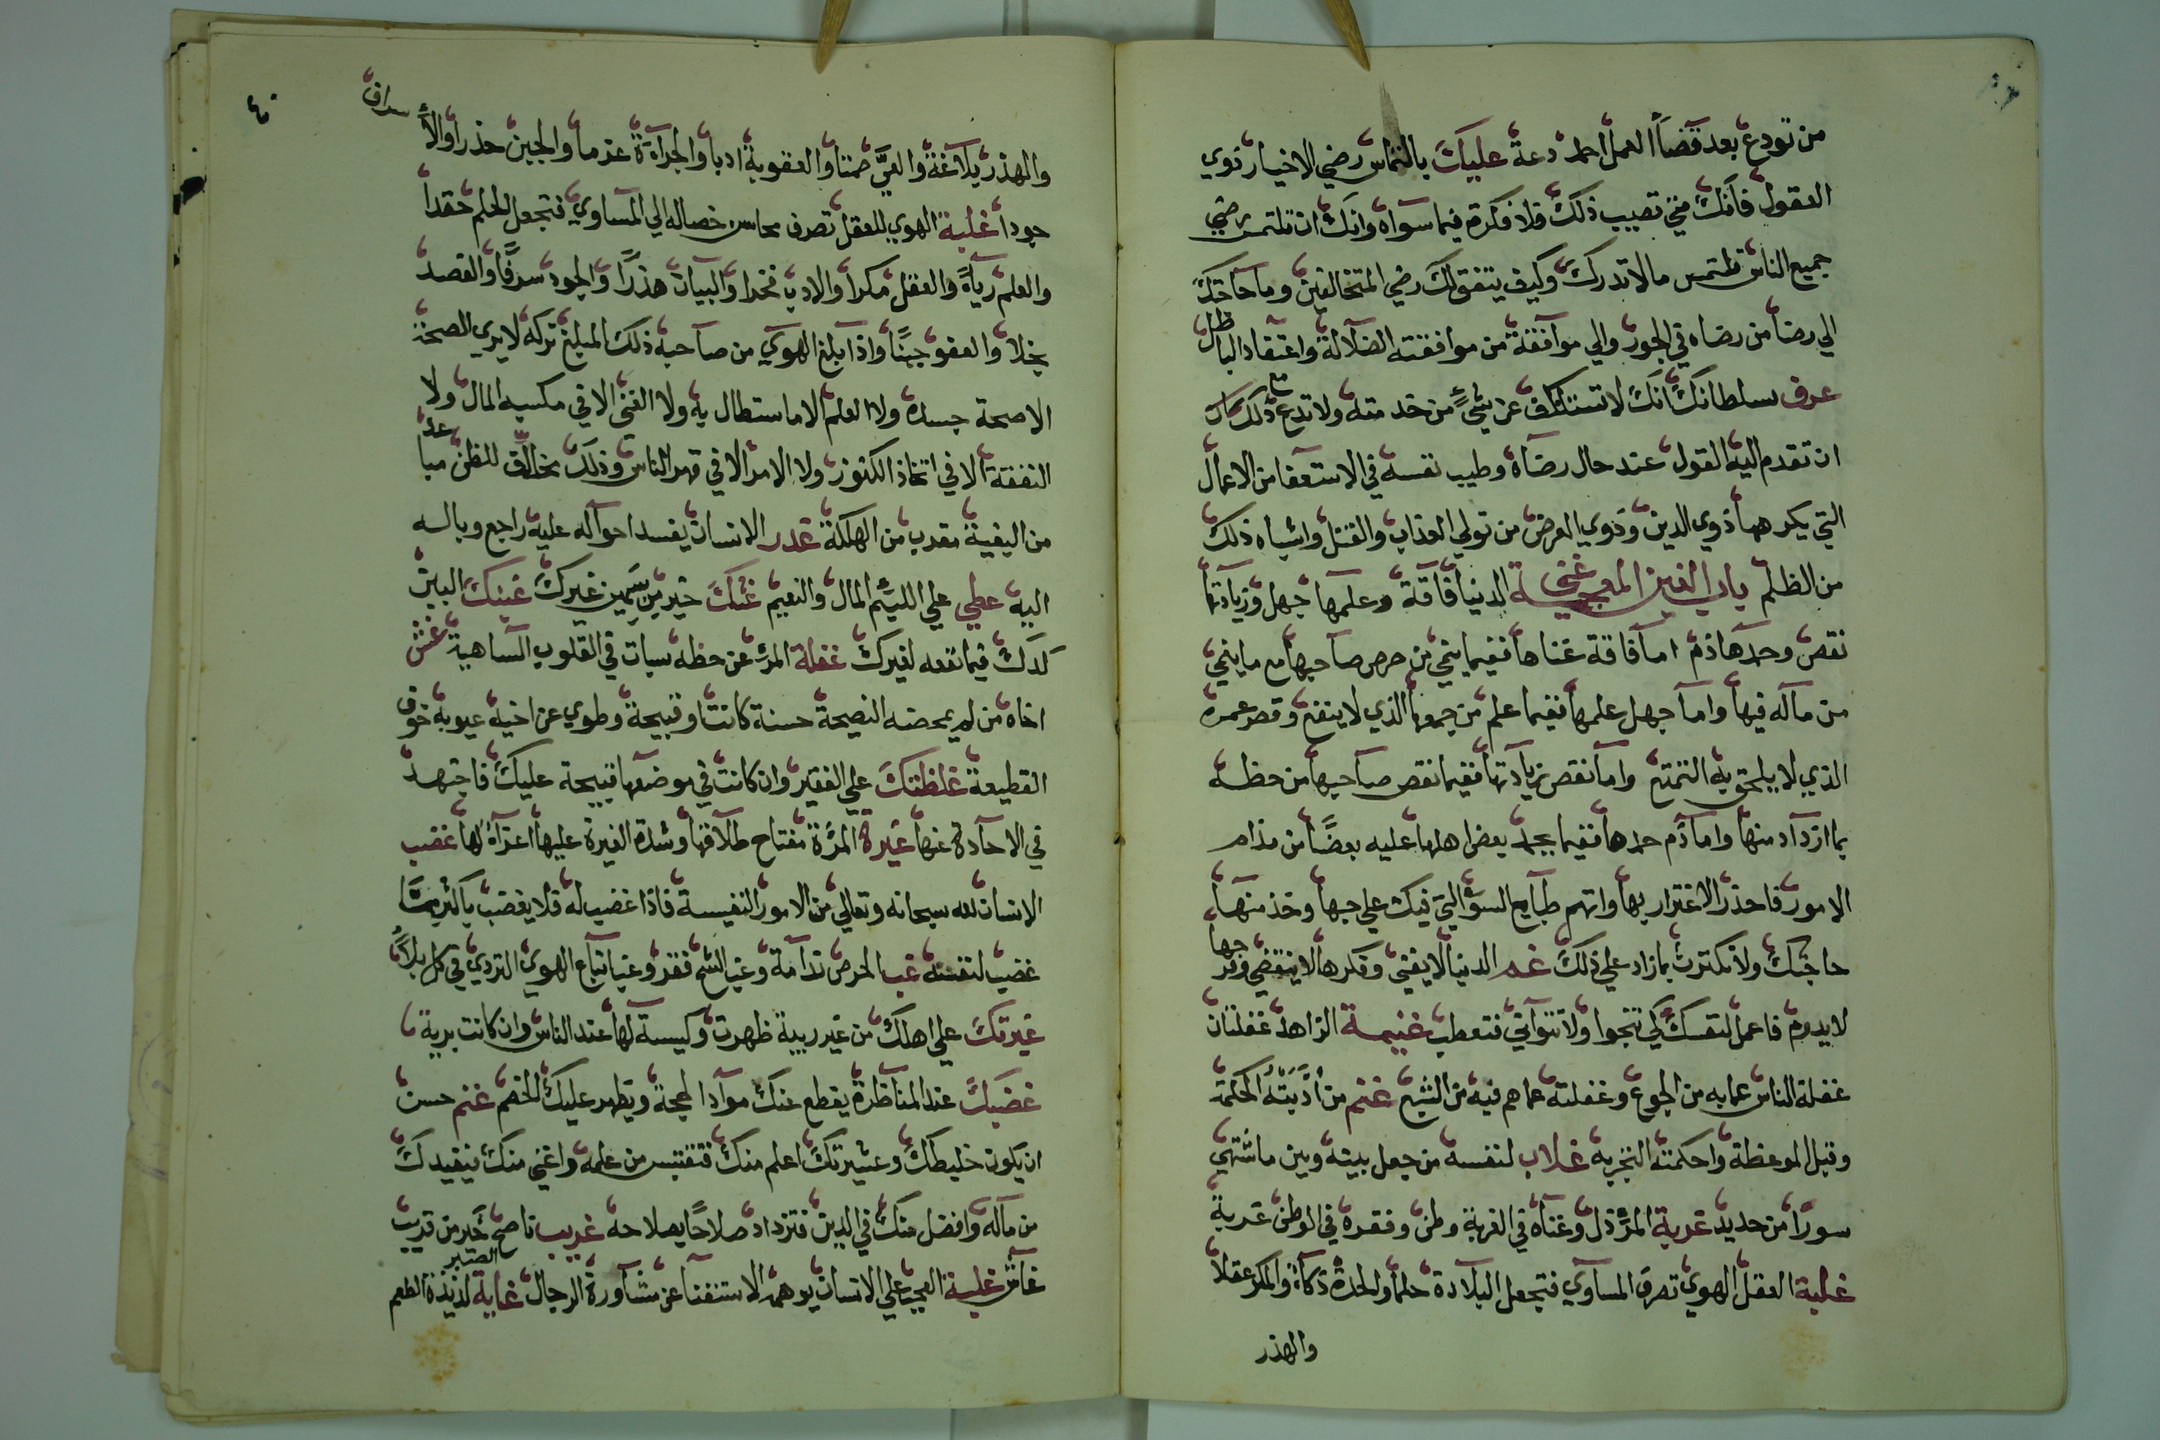 من تودع بعد قضاء العمل احمد دعة عليك بالتماس رضي الاخيار ذوي
العقول فانك متي تصيب ذلك فلا فكرة فيما سواه وانك ان تلتمس رضي
جميع الناس تلتمس مالا تدرك وكيف يتفق لك رضي المتخالفين وما حاجتك
الي رضا من رضاه في الجور والي موافقة من موافقته الضلالة واعتقاد الباطل
عرف سلطانك انك لا تستنكف عن شيء من خدمته ولا تدع مع ذلك
ان تقدم اليه القول عند حال رضاه وطيب نفسه في الاستعفا من الاعمال
التي يكرهها ذوي الدين وذوي العرض من تولي العذاب والقتل واشباه ذلك
من الظلم باب الغين المعجمة غني الدنيا فاقة وعلمها جهل وزيادتها
نقص وحمدها ذم اما فاقة غناها ففيما ينمي من حرص صاحبها مع ما ينمي
من ماله فيها واما جهل علمها ففيما علم من جمعها الذي لا ينفع وقصر عمره
الذي لا يلحق به التمتع واما نقص زيادتها ففيما نقص صاحبها من حظه
بما ازداد منها واما ذم حمدها ففيما يحمد بعض اهلها عليه بعضا من مذام
الامور فاحذر الاغترار بها واتهم طبايع السوء التي فيك علي حبها وخذ منها
حاجتك ولا تكترث بما زاد علي ذلك غم الدنيا لا يفني وفكرها لا ينقضي وفرحها
لا يدوم فاعمل لنفسك كي تنجوا ولا تتواني فتعطب غنيمة الزاهد غفلتان
غفلة الناس عما به من الجوع وغفلته عما هم فيه من الشبع غنم من أدبته الحكمة
وقبل الموعظة واحكمته التجربة غلاب لنفسه من جعل بينه وبين ما تشتهي
سورا من حديد غربة المرء ذل وغناه في الغربة وطن وفقره في الوطن غربة
غلبة العقل الهوي تصرف المساوي فتجعل البلادة حلما والحدة ذكاء والمكر عقلا
والهذر
٤٠
والهذر بلاغة والعي صمتا والعقوبة ادبا والجراءة عزما والجبن حذرا والا
سراف
جودا غلبة الهوي للعقل تصرف محاسن خصاله الي المساوي فتجعل الحلم حقدا
والعلم رياء والعقل مكرا والادب فخرا والبيان هذرا والجود سرفا والقصد
بخلا والعفو جبنا واذا بلغ الهوي من صاحبه ذلك المبلغ تركه لا يري الصحة
الا صحة جسده ولا العلم الا ما استطال به ولا الغني الا في مكسبه المال ولا
النفقة الا في اتخاذ الكنوز ولا الامر الا في قهر الناس وذلك مخالف للظن مباعد
من البغية مقرب من الهلكة غدر الانسان يفسد احواله عليه راجع وباله
اليه غطي علي اللئيم المال والنعيم غثك خير من سمين غيرك غبنك البين
كدك فيما نفعه لغيرك غفلة المرء عن حظه سبات في القلوب الساهية غش
اخاه من لم يمحضه النصيحة حسنة كانت او قبيحة وطوي عن اخيه عيوبه خوف
القطيعة غلظتك علي الفقير وان كانت في موضعها قبيحة عليك فاجتهد
في الاحادة عنها غيرة المرءة مفتاح طلاقها وشدة الغيرة عليها اغراء لها غضب
الانسان لله سبحانه وتعالي من الامور النفيسة فاذا غضب له فلا يغضب
غضب لنفسه غب الحرص ندامة وغب الشح فقر وغب اتباع الهوي التردي في كل بلاء
غيرتك علي اهلك من غير ريبة ظهرت وكيسة لها عند الناس وان كانت برية
غضبك عند المناظرة يقطع عنك مواد الحجة ويظهر عليك الخصم غنم حسن
ان يكون خليطك وعشيرتك اعلم منك فتقتبس من علمه واغني منك فيفيدك
من ماله وافضل منك في الدين فتزداد صلاحا بصلاحه غريب ناصح خير من قريب
غاش غلبة العجب علي الانسان يوهمه الاستغنا عن مشاورة الرجال غاية الصبر لذيذة الطعم